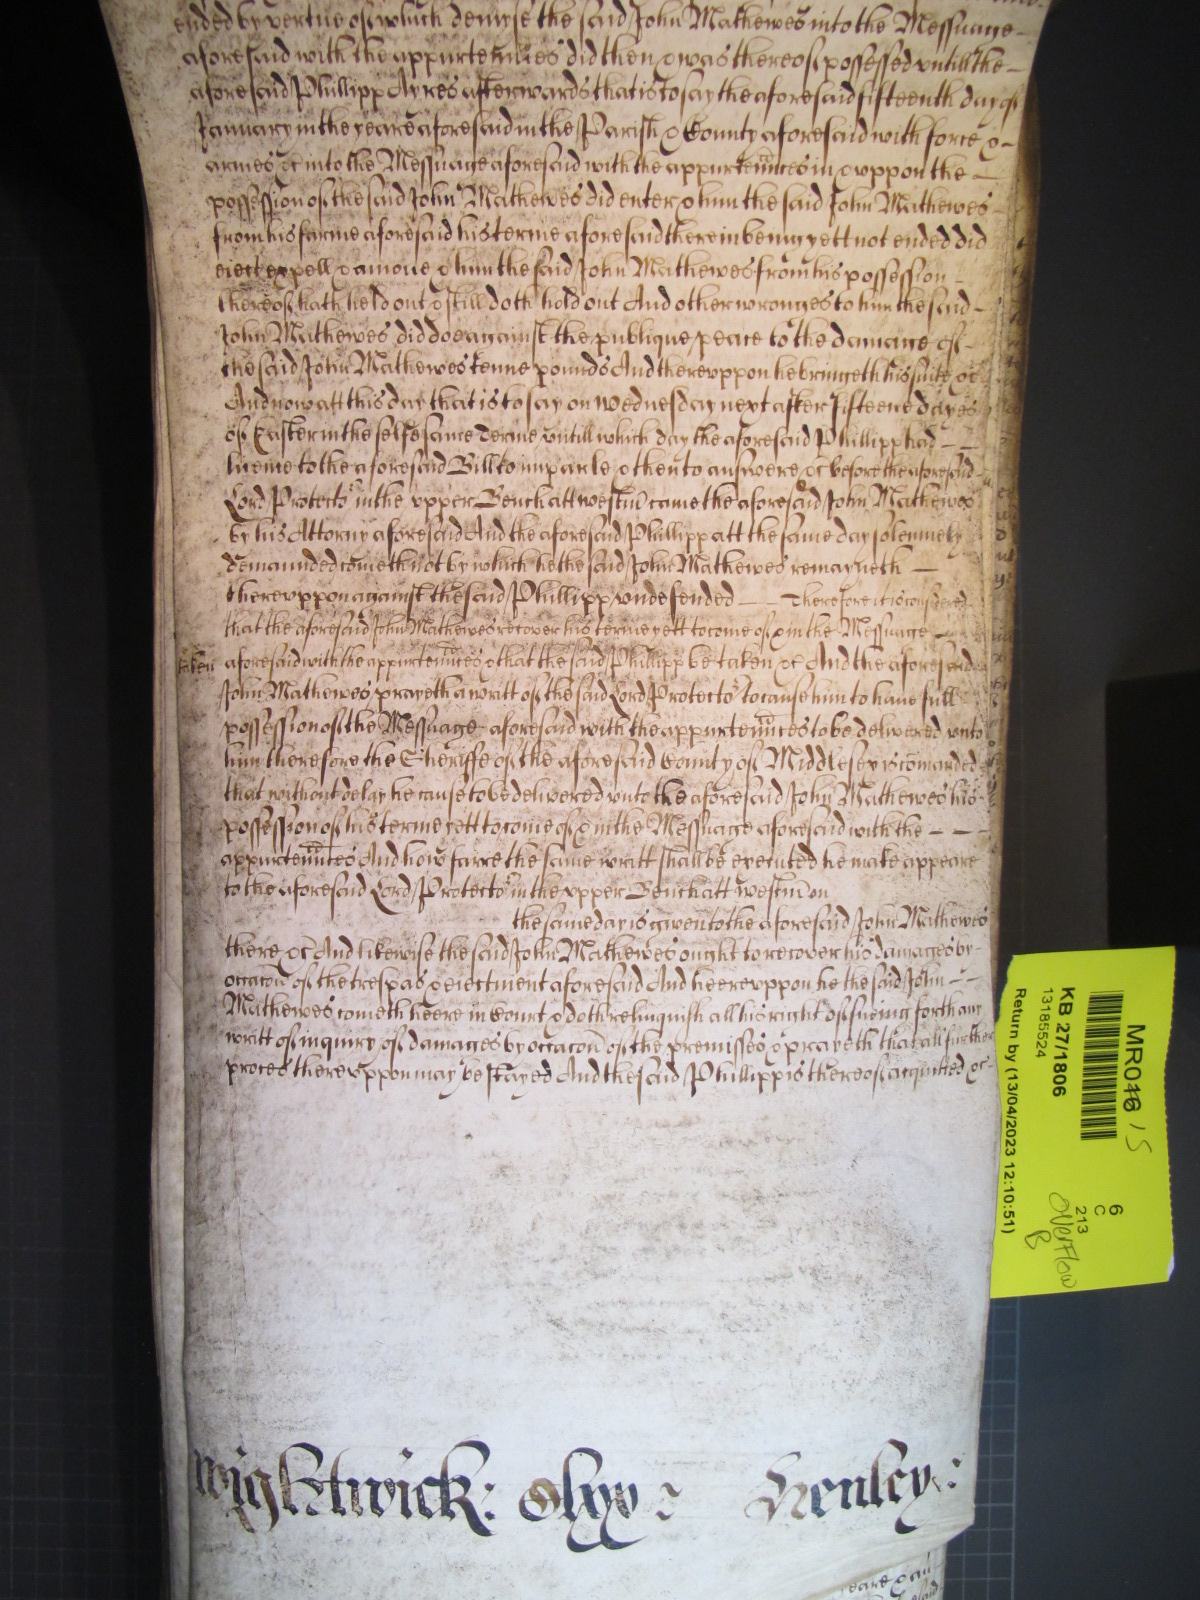 ended by vertue of which demise the said John Mathewes into the Messuage
aforesaid with the appurtennces did then & was thereof possessed untill the
aforesaid Phillipp Ayres afterwards that is to say the aforesaid fifteenth day of
January in the yeare aforesaid in the Parish & County aforesaid with force &
armes &c into the Messuage aforesaid with the appurtennces in & uppon the
possession of the said John Mathewes did enter & him the said John Mathewes
from his farme aforesaid his terme aforesaid therein being yett not ended did
eiect expell & amoue & him the said John Mathewes from his possession
thereof hath held out & still doth hold out And other wronges to him the said
John Mathewes did doe against the publique peace to the damage of
the said John Mathewes tenne pounds And thereuppon he bringeth his suite &c
And now att this day that is to say on Wednesday next after fifteene dayes
of Easter in the selfe same Terme untill which day the aforesaid Phillipp had
liceme to the aforesaid Bill to imparle & then to answere &c before the aforesaid
Lord Protector in the upper Bench att Westm came the aforesaid John Mathewes
by his Attorny aforesaid And the aforesaid Phillipp att the same day solemnely
demaunded cometh not by which he the said John Mathewes remayneth
thereuppon against the said Phillipp undefended Therefore it is considered
that the aforesaid John Mathewes recover his terme yett to come of & in the Messuage
taken aforesaid with the appurtennces & that the said Phillipp be taken &c And the aforesaid
John Mathewes prayeth a writt of the said Lord Protector to cause him to have full
possession of the Messuage aforesaid with the appurtennces to be delivered unto
him therefore the Sheriffe of the aforesaid County of Middlesex is comanded
that without delay he cause to be delivered unto the aforesaid John Mathewes his
possession of his terme yett to come of & in the Messuage aforesaid with the
appurtennces And how farre the same writt shall be executed he make appeare
to the aforesaid Lord Protector in the upper Bench att Westm on
the same day is given to the aforesaid John Mathewes
there &c And likewise the said John Mathewes ought to recover his damages by
occacon of the trespas & eiectment aforesaid And heereuppon he the said John
Mathewes cometh heere in Court & doth relinquish all his right of sueing forth any
writt of inquiry of damages by occacon of the premisses & prayeth that all further
proces thereuppon may be stayed And the said Phillipp is thereof acquitted &c
Wightwick: Henley:
MR016 15
KB 27/1806
13185524
Return by (13/04/2023 12:10:51)
6
C
213
overflow
B